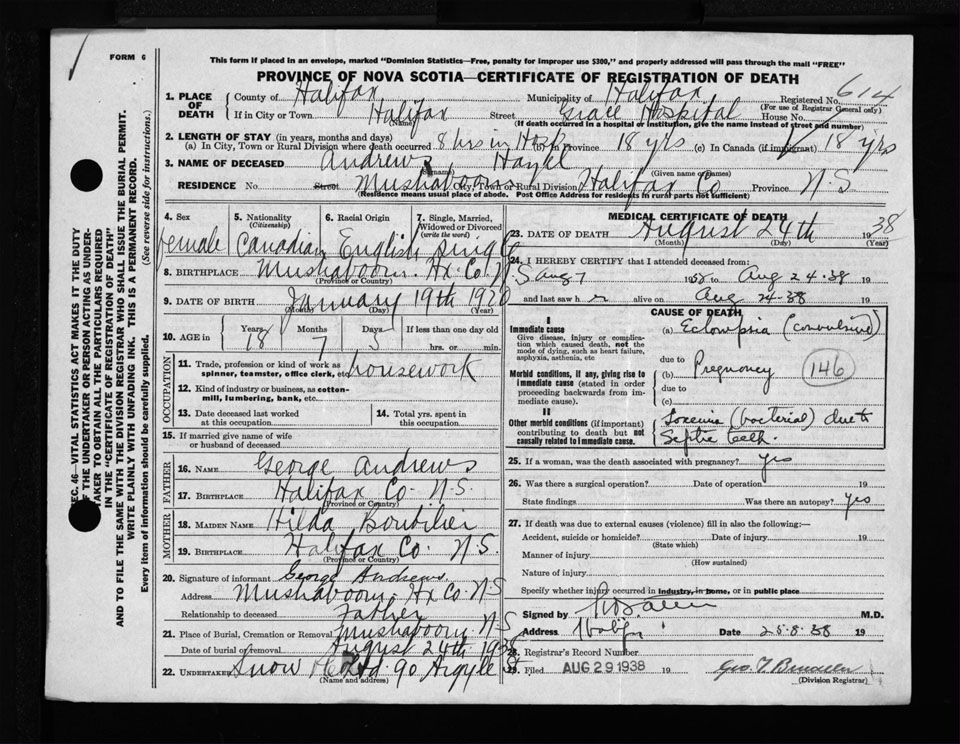 FORM 6
This form if placed in an envelope, marked "Dominion Statistics—Free, penalty for improper use $300," and properly addressed will pass through the mail "FREE"
PROVINCE OF NOVA SCOTIA—CERTIFICATE OF REGISTRATION OF DEATH
SEC. 46—VITAL STATISTICS ACT MAKES IT THE DUTY
OF THE UNDERTAKER OR PERSON ACTING AS UNDER-
TAKER TO OBTAIN ALL THE PARTICULARS REQUIRED
IN THE "CERTIFICATE OF REGISTRATION OF DEATH"
AND TO FILE THE SAME WITH THE DIVISION REGISTRAR WHO SHALL ISSUE THE BURIAL PERMIT.
WRITE PLAINLY WITH UNFADING INK. THIS IS A PERMANENT RECORD.
Every item of information should be carefully supplied. (See reverse side for instructions.)
1. PLACE OF DEATH County of Halifax Municipality of Halifax Registered No. 614
(For use of Registrar General only)
If in City or Town Halifax Street Grace Hospital House No.
(Name) (If death occurred in a hospital or institution, give the name instead of street and number)
2. LENGTH OF STAY (in years, months and days)
(a) In City, Town or Rural Division where death occurred 8 hrs in Hosp In Province 18 yrs (c) In Canada (if immigrant) 18 yrs
3. NAME OF DECEASED Andrews Hazel
(Surname) (Given name or names)
RESIDENCE No. Street Mushaboom City, Town or Rural Division Halifax Co Province N.S
(Residence means usual place of abode. Post Office Address for residents in rural parts not sufficient)
4. Sex 5. Nationality (Citizenship) 6. Racial Origin 7. Single, Married, Widowed or Divorced (write the word)
female Canadian English Single
8. BIRTHPLACE Mushaboom. Hx. Co. N.S
(Province or Country)
9. DATE OF BIRTH January 19th 1920
(Month) (Day) (Year)
10. AGE in Years Months Days If less than one day old
18 7 5 hrs. or min.
OCCUPATION
11. Trade, profession or kind of work as spinner, teamster, office clerk, etc. housework
12. Kind of industry or business, as cotton-mill, lumbering, bank, etc.
13. Date deceased last worked at this occupation
14. Total yrs. spent in this occupation
15. If married give name of wife or husband of deceased
FATHER
16. NAME George Andrews
17. BIRTHPLACE Halifax Co. N.S.
(Province or Country)
MOTHER
18. MAIDEN NAME Hilda Boutilier
19. BIRTHPLACE Halifax Co. N.S.
(Province or Country)
20. Signature of informant George Andrews.
Address Mushaboom. Hx Co. N.S
Relationship to deceased Father
21. Place of Burial, Cremation or Removal Mushaboom N.S
Date of burial or removal August 24th 1938
22. UNDERTAKER Snow Ltd 90 Argyle St
(Name and address)
MEDICAL CERTIFICATE OF DEATH
23. DATE OF DEATH August 24th 1938
(Month) (Day) (Year)
24. I HEREBY CERTIFY that I attended deceased from:
Aug 7 1938 to Aug 24.38 19
and last saw h er alive on Aug 24-38 19
CAUSE OF DEATH
I
Immediate cause
Give disease, injury or complication which caused death, not the mode of dying, such as heart failure, asphyxia, asthenia, etc
(a) Eclampsia (convulsive)
due to
Morbid conditions, if any, giving rise to immediate cause (stated in order proceeding backwards from immediate cause).
(b) Pregnancy 146
due to
(c)
II
Other morbid conditions (if important) contributing to death but not causally related to immediate cause.
Toxemia (bacterial) due to
Septic teeth.
25. If a woman, was the death associated with pregnancy? yes
26. Was there a surgical operation? Date of operation 19
State findings Was there an autopsy? yes
27. If death was due to external causes (violence) fill in also the following:—
Accident, suicide or homicide? Date of injury 19
(State which)
Manner of injury
(How sustained)
Nature of injury
Specify whether injury occurred in industry, in home, or in public place
Signed by M.D.
Address Halifax Date 25.8.38 19
28. Registrar's Record Number
29. Filed AUG 29 1938 Geo.
(Division Registrar)